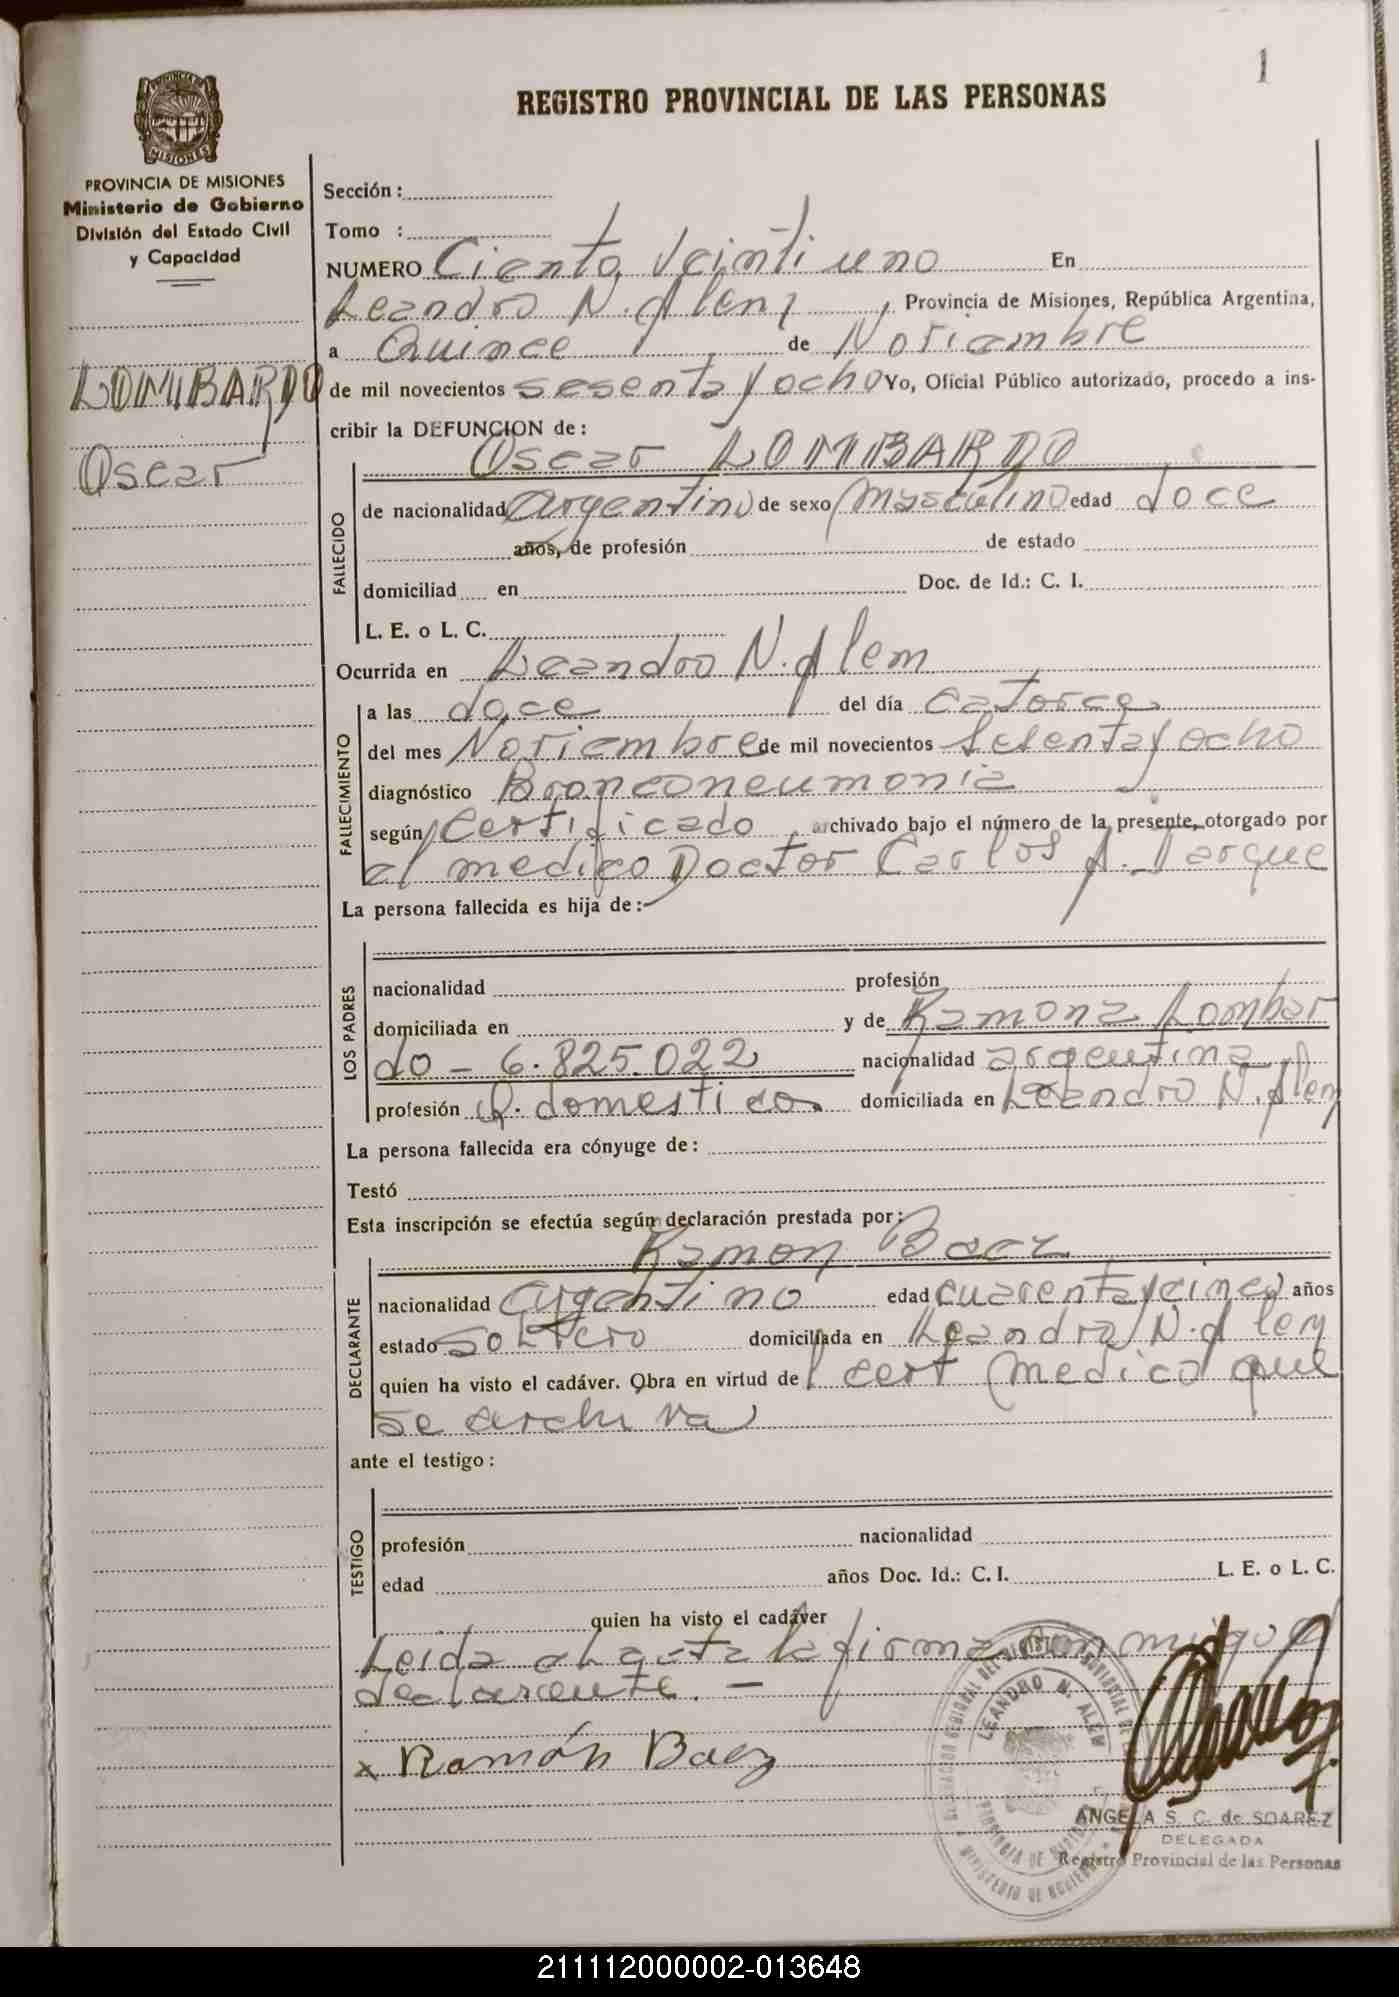 1
REGISTRO PROVINCIAL DE LAS PERSONAS
PROVINCIA DE
MISIONES
PROVINCIA DE MISIONES
Ministerio de Gobierno
División del Estado Civil
y Capacidad
LOMBARDO
Oscar
Sección :
Tomo :
NUMERO Ciento Veinti uno En
Leandro N. Alem, Provincia de Misiones, República Argentina,
a Quince de Noviembre
de mil novecientos sesenta y ocho Yo, Oficial Público autorizado, procedo a ins-
cribir la DEFUNCION de :
Oscar LOMBARDO
FALLECIDO
de nacionalidad argentino de sexo masculino edad doce
años, de profesión de estado
domiciliad en Doc. de Id.: C. I.
L. E. o L. C.
Ocurrida en Leandro N. Alem
FALLECIMIENTO
a las doce del día catorce
del mes Noviembre de mil novecientos sesenta y ocho
diagnóstico Bronconeumonia
según certificado, archivado bajo el número de la presente, otorgado por
el medico Doctor Carlos A.
La persona fallecida es hija de :
LOS PADRES
nacionalidad profesión
domiciliada en y de Ramona Lombar
do - 6.825.022 nacionalidad argentina
profesión Q. domesticos domiciliada en Leandro N. Alem
La persona fallecida era cónyuge de :
Testó
Esta inscripción se efectúa según declaración prestada por :
Ramon Baez
DECLARANTE
nacionalidad argentino edad cuarenta y cinco años
estado soltero domiciliada en Leandro N. Alem
quien ha visto el cadáver. Obra en virtud de cert medico que
se archiva
ante el testigo :
TESTIGO
profesión nacionalidad
edad años Doc. Id.: C. I. L. E. o L. C.
quien ha visto el cadáver
Leida el acta la firma conmigo el
declarante. -
x Ramón Baez
LEANDRO N. ALEM
ANGELA S. C. de SOAREZ
DELEGADA
Registro Provincial de las Personas
211112000002-013648